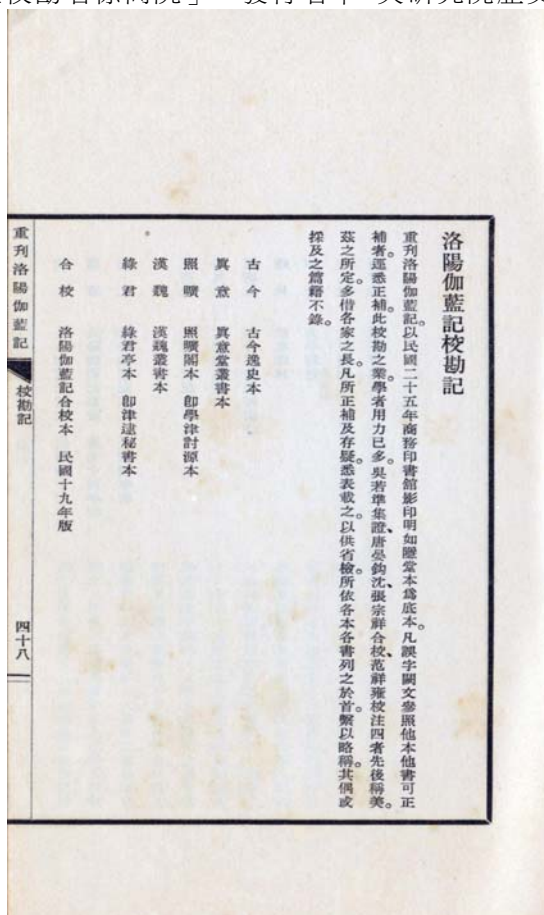 洛陽伽藍記校勘記
重刊洛陽伽藍記。以民國二十五年商務印書館影印明如隱堂本爲底本。凡誤字闕文參照他本他書可正
補者。逕悉正補。此校勘之業。學者用力已多。吳若準集證、唐晏鉤沈、張宗祥合校、范祥雍校注四者先後稱美。
茲之所定。多借各家之長。凡所正補及存疑。悉表載之。以供省檢。所依各本各書列之於首。繫以略稱。其偶或
採及之篇籍不錄。
古今　古今逸史本
眞意　眞意堂叢書本
照曠　照曠閣本　卽學津討源本
漢魏　漢魏叢書本
綠君　綠君亭本　卽津逮秘書本
合校　洛陽伽藍記合校本　民國十九年版
重刊洛陽伽藍記　校勘記　四十八